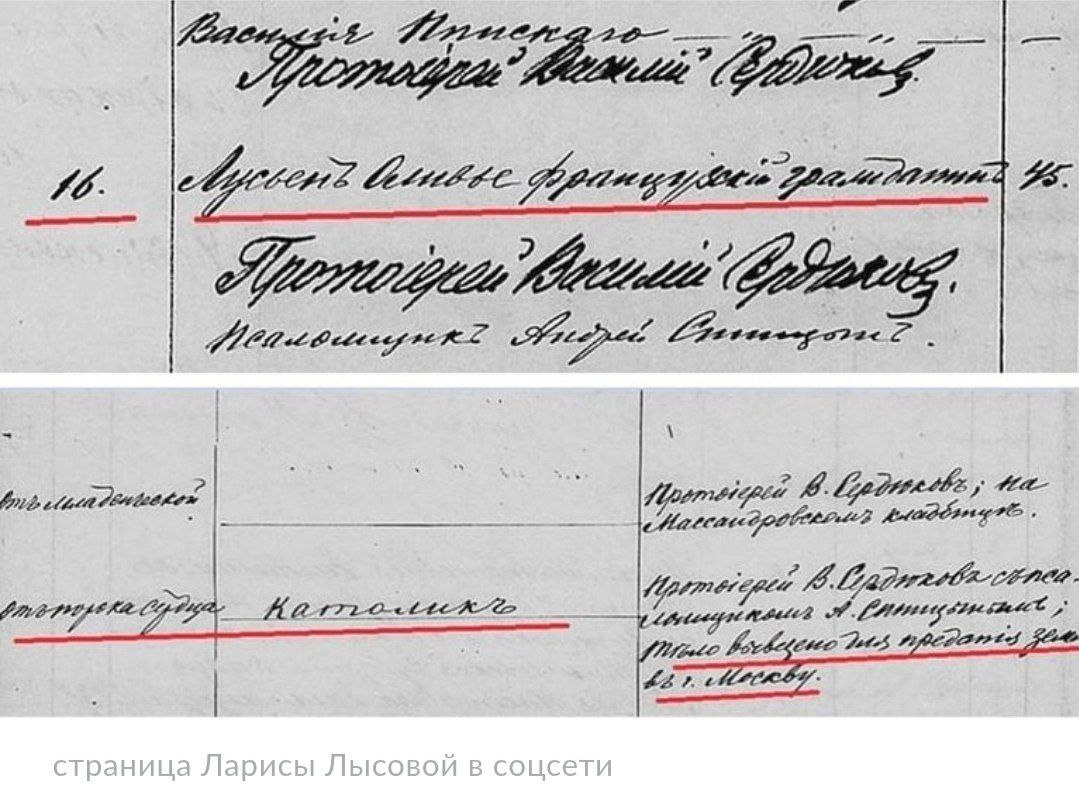 Василія Ялпскаго — „ — „ — —
Протоіерей Василій Сердюковъ.
16. Лусьенъ Оливье французскій гражданинъ 45.
Протоіерей Василій Сердюковъ.
Псаломщикъ Андрей Спицынъ.
отъ младенческой
Протоіерей В. Сердюковъ; на
Массандровскомъ кладбищѣ.
отъ порока сердца
Католикъ
Протоіерей В. Сердюковъ съ пса-
ломщикомъ А. Спицынымъ;
тѣло вывезено для преданія земл
въ г. Москву.
страница Ларисы Лысовой в соцсети